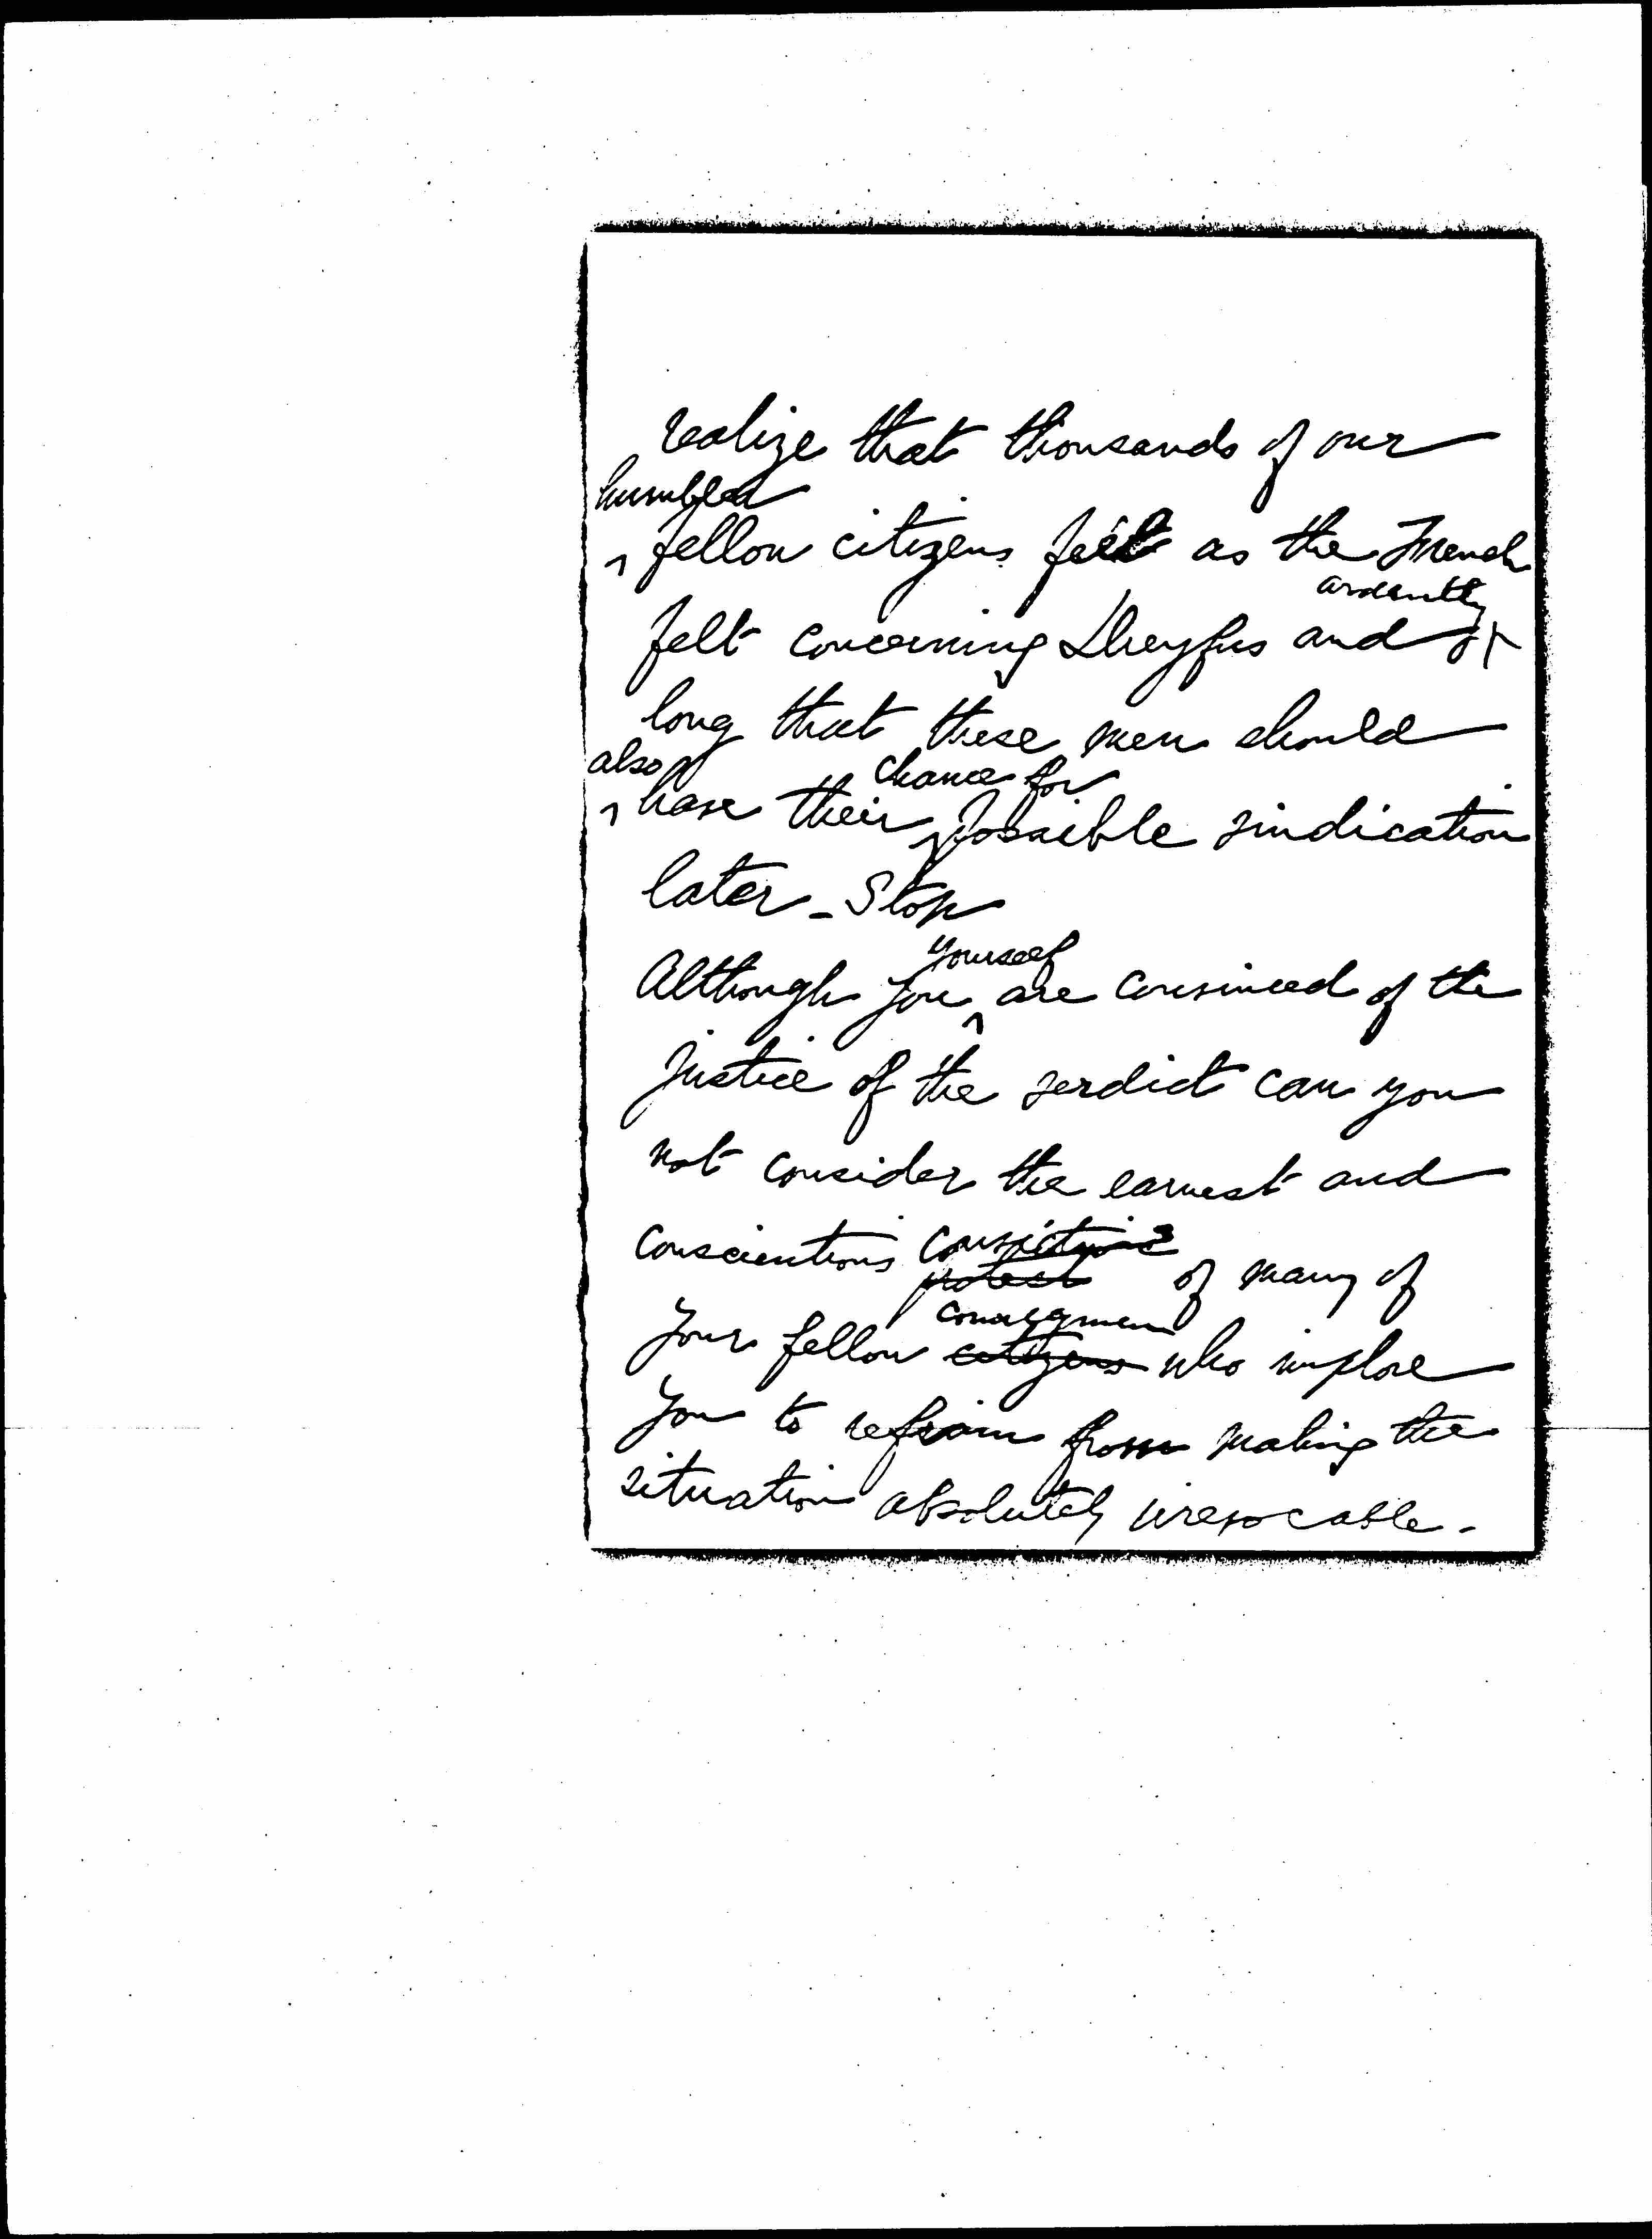 realize that thousands of our
humbler
fellow citizens feel as the French
ardently
felt concerning Dreyfus and
long that these men should
also chance for
have their possible vindication
later - Stop
yourself
Although you are convinced of the
justice of the verdict can you
not consider the earnest and
conscientious convictions
protest of many of
countrymen
your fellow citizens who implore
you to refrain from making the
situation absolutely irrevocable.